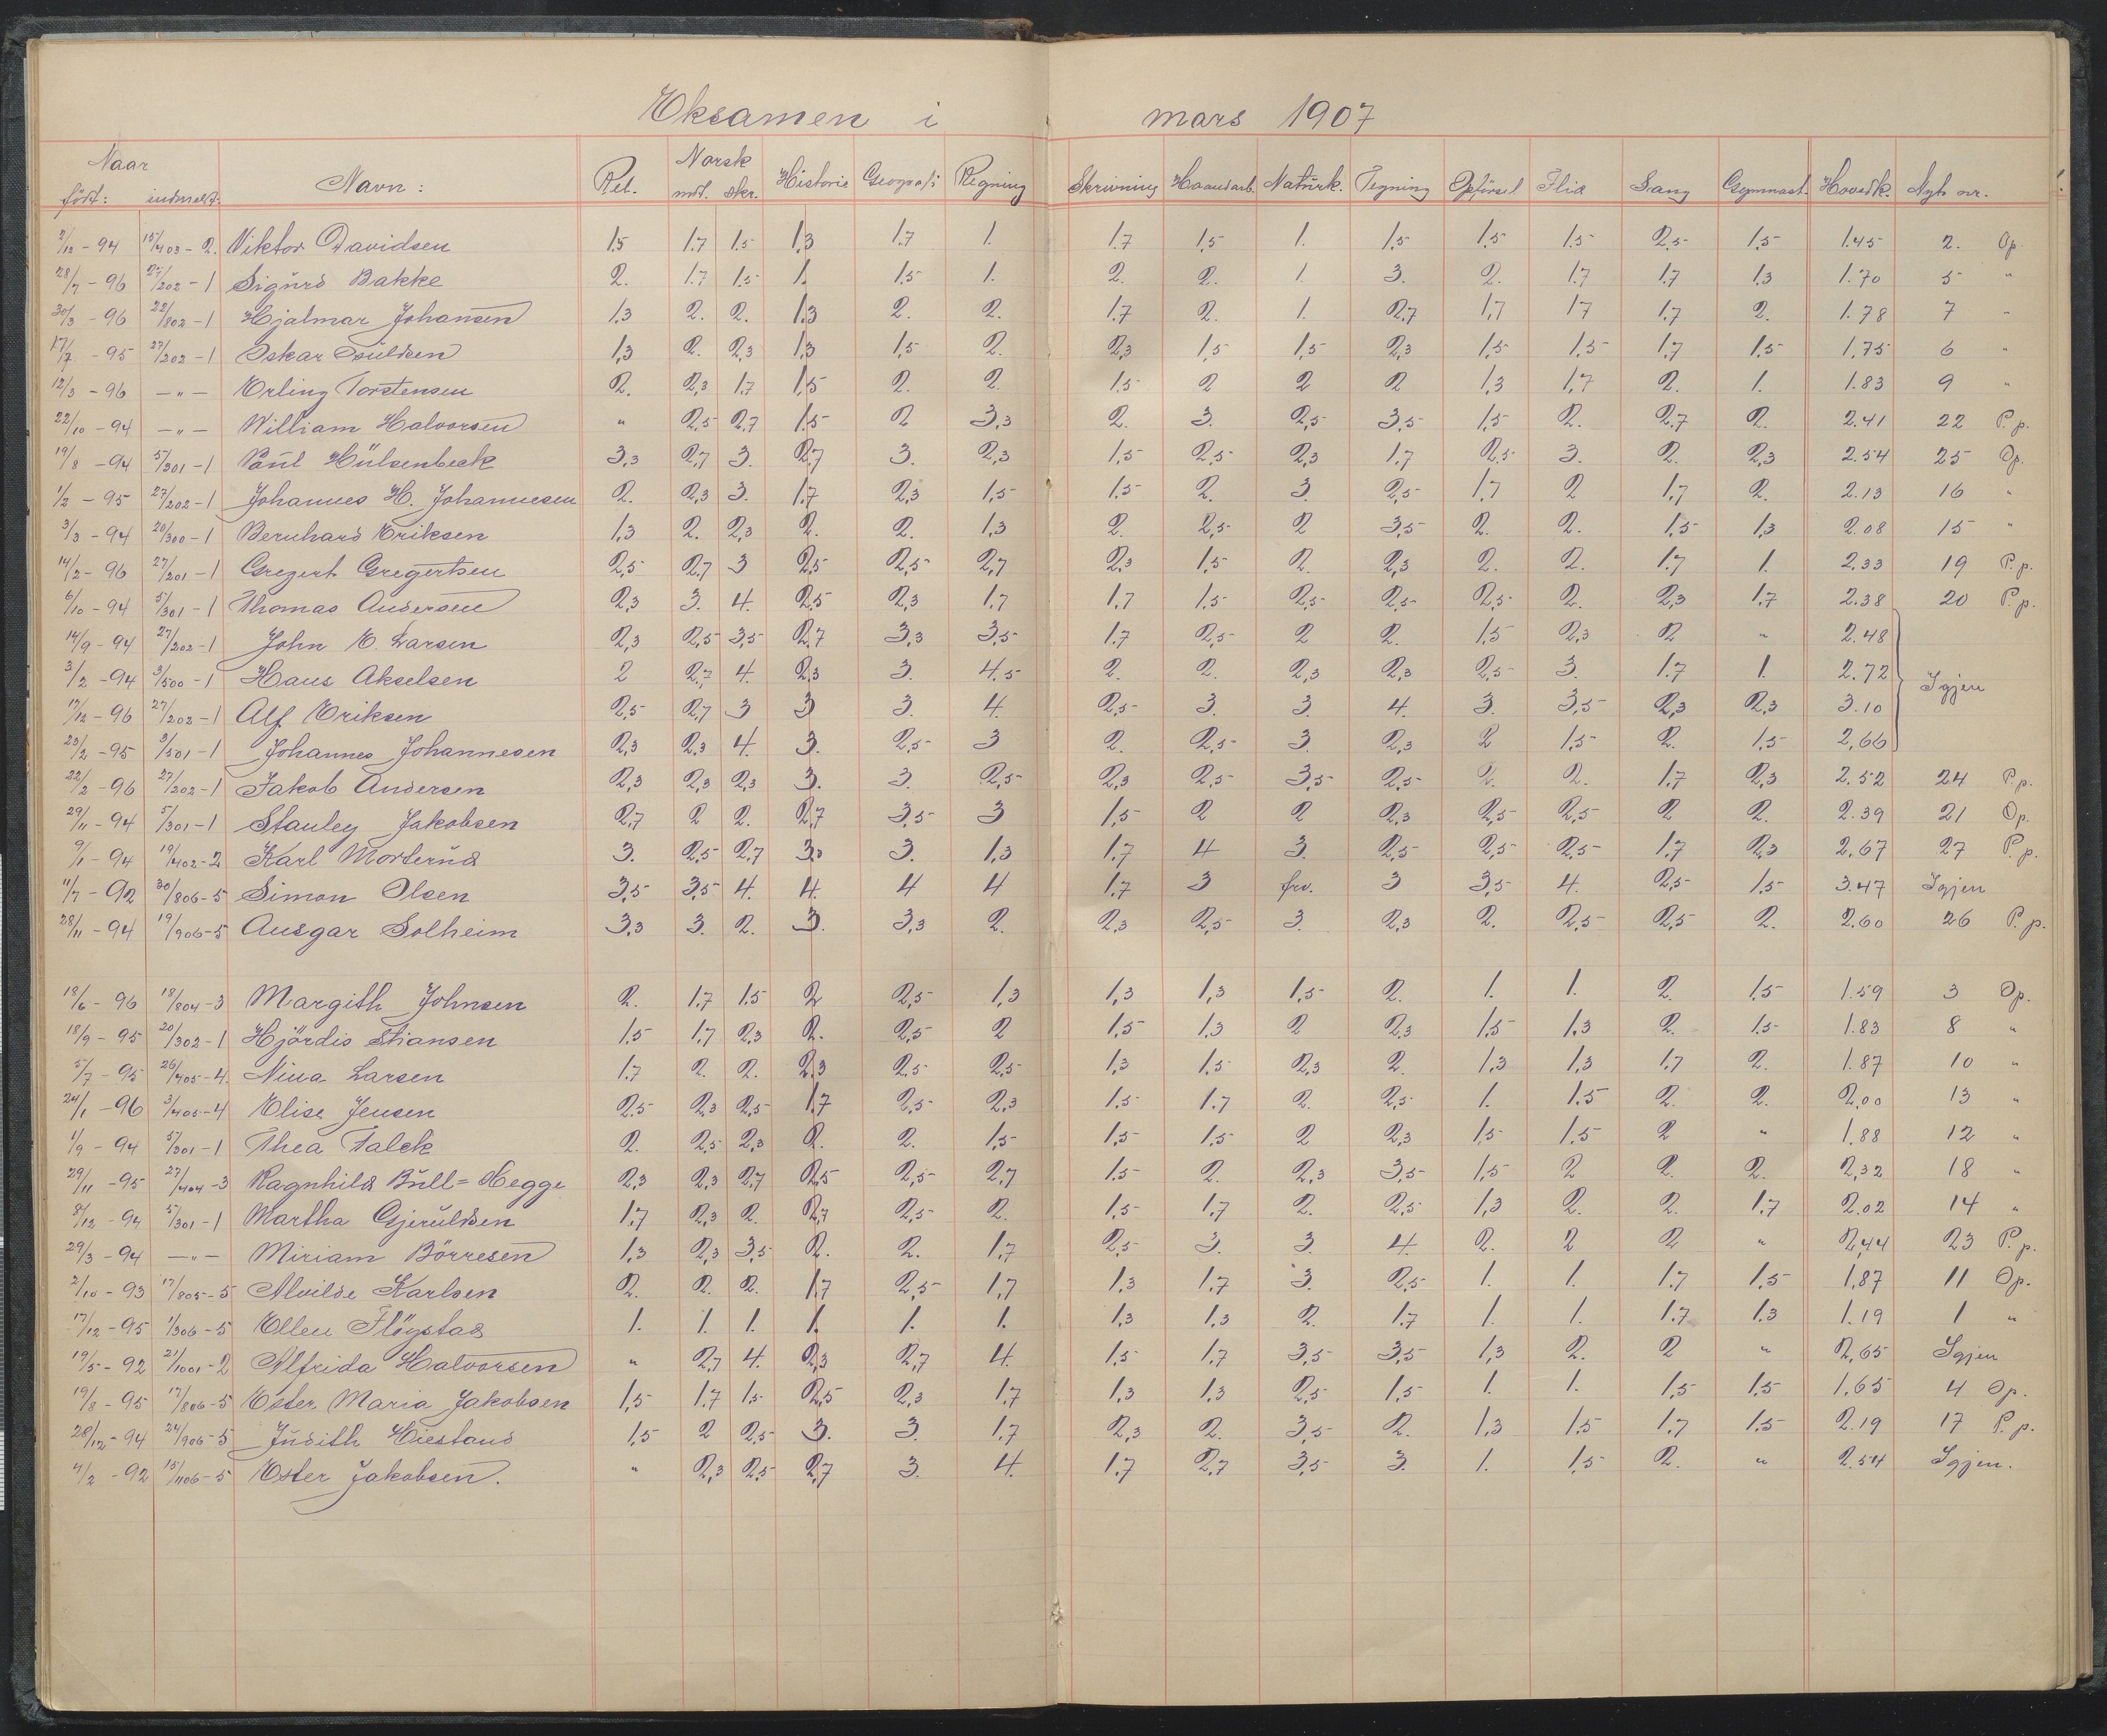 Eksamen i mars 1907
Naar Norsk
født: indmeldt. Navn: Rel. mdt. skr. Historie Geografi Regning Skrivning Haandarb. Naturk. Tegning Opførsel Flid Sang Gymnast. Hovedk. Nyt nr.
2/12 - 94 15/403 - 2. Viktor Davidsen 1.5 1.7 1.5 1,3 1.7 1. 1.7 1,5 1. 1,5 1.5 1.5 2,5 1,5 1.45 2. Op.
28/7 - 96 27/202 - 1 Sigurd Bakke 2. 1.7 1.5 1. 1.5 1. 2. 2. 1. 3. 2. 1.7 1.7 1,3 1.70 5 "
30/3 - 96 22/802 - 1 Hjalmar Johansen 1,3 2. 2. 1.3 2. 2. 1.7 2. 1. 2,7 1,7 17 1.7 2. 1.78 7 "
17/7 - 95 27/202 - 1 Oskar 1,3 2. 2,3 1,3 1,5 2. 2,3 1,5 1,5 2,3 1,5 1.5 1,7 1,5 1,75 6 "
12/3 - 96 - " - Erling Torstensen 2. 2,3 1.7 1,5 2. 2. 1.5 2 2 2 1,3 1,7 2. 1. 1.83 9 "
22/10 - 94 - " - William Halvorsen " 2,5 2,7 1.5 2 3,3 2. 3. 2,5 3,5 1,5 2. 2,7 2. 2.41 22 P.p.
19/8 - 94 5/301 - 1 Paul Hülsenbeck 3,3 2,7 3. 2.7 3. 2,3 1,5 2,5 2,3 1.7 2,5 3. 2. 2,3 2.54 25 Op.
1/2 - 95 27/202 - 1 Johannes H. Johannesen 2. 2,3 3. 1.7 2,3 1,5 1.5 2. 3. 2,5 1,7 2 1,7 2. 2.13 16 "
3/3 - 94 20/300 - 1 Bernhard Eriksen 1,3 2. 2,3 2. 2. 1,3 2. 2,5 2 3,5 2. 2. 1,5 1,3 2.08 15 "
14/2 - 96 27/201 - 1 Gregert Gregertsen 2,5 2,7 3 2,5 2,5 2,7 2,3 1,5 2. 2,3 2. 2. 1.7 1. 2.33 19 P.p.
6/10 - 94 5/301 - 1 Thomas Andersen 2,3 3. 4. 2,5 2,3 1.7 1,7 1.5 2,5 2,5 2,5 2. 2,3 1.7 2.38 20 P.p.
14/9 - 94 27/202 - 1 John E. Larsen 2,3 2,5 3,5 2.7 3,3 3,5 1.7 2,5 2 2. 1.5 2,3 2 " 2.48
3/2 - 94 3/500 - 1 Hans Akselsen 2 2,7 4. 2,3 3. 4,5 2. 2. 2,3 2,3 2,5 3. 1.7 1. 2.72 Igjen
17/12 - 96 27/202 - 1 Alf Eriksen 2,5 2,7 3 3 3. 4. 2,5 3. 3. 4. 3. 3,5 2,3 2,3 3.10
23/2 - 95 3/501 - 1 Johannes Johannesen 2,3 2,3 4. 3. 2,5 3 2. 2,5 3. 2,3 2 1,5 2. 1,5 2,66
22/2 - 96 27/202 - 1 Jakob Andersen 2,3 2,3 2,3 3. 3. 2,5 2,3 2,5 3,5 2,5 2. 2. 1.7 2,3 2.52 24 P.p.
29/11 - 94 5/301 - 1 Stanley Jakobsen 2,7 2 2. 2,7 3,5 3 1,5 2 2 2,3 2,5 2,5 2 2. 2.39 21 Op.
9/1 - 94 19/402 - 2 Karl Morterud 3. 2,5 2,7 3. 3. 1,3 1.7 4 3. 2,5 2,5 2,5 1.7 2,3 2,67 27 P.p.
11/7 - 92 30/806 - 5 Simon Olsen 3,5 3,5 4. 4. 4 4 1.7 3 frv. 3 3,5 4. 2,5 1,5 3.47 Igjen
28/11 - 94 19/906 - 5 Ansgar Solheim 3,3 3. 2. 3. 3,3 2. 2,3 2,5 3. 2,3 2. 2,5 2,5 2. 2.60 26 P.p.
18/6 - 96 18/804 - 3 Margith Johnsen 2. 1.7 1.5 2 2,5 1,3 1,3 1,3 1,5 2. 1. 1. 2. 1.5 1.59 3 Op.
18/9 - 95 20/302 - 1 Hjördis Stiansen 1.5 1,7 2,3 2. 2,5 2 1,5 1.3 2 2,3 1,5 1,3 2. 1.5 1.83 8 "
5/7 - 95 26/405 - 4. Nina Larsen 1.7 2. 2. 2.3 2,5 2,5 1,3 1.5 2,3 2. 1,3 1,3 1,7 2. 1.87 10 "
24/1 - 96 3/405 - 4 Elise Jensen 2.5 2,3 2,5 1.7 2,5 2,3 1.5 1.7 2. 2,5 1. 1.5 2. 2. 2,00 13 "
1/9 - 94 5/301 - 1 Thea Falck 2. 2,5 2,3 2. 2. 1,5 1,5 1.5 2 2,3 1,5 1.5 2 " 1,88 12 "
29/11 - 95 27/404 - 3 Ragnhild Bull=Hegge 2,3 2,3 2,7 2,5 2,5 2,7 1.5 2. 2,3 3,5 1,5 2 2. 2. 2,32 18 "
8/12 - 94 5/301 - 1 Martha Gjeruldsen 1,7 2,3 2. 2,7 2,5 2. 1,5 1,7 2. 2,5 1,3 2. 2. 1.7 2.02 14 "
29/3 - 94 - " - Miriam Börresen 1,3 2,3 3,5 2. 2. 1.7 2,5 3. 3. 4. 2. 2 2 " 2,44 23 P.p.
2/10 - 93 17/805 - 5 Alvilde Karlsen 2. 2. 2. 1.7 2,5 1,7 1,3 1.7 3. 2,5 1. 1. 1.7 1,5 1,87 11 Op.
17/12 - 95 1/306 - 5 Ellen Flöystad 1. 1. 1. 1. 1. 1. 1,3 1,3 2. 1.7 1. 1. 1.7 1.3 1.19 1 "
19/5 - 92 21/1001 - 2 Alfrida Halvorsen " 2,7 4. 2,3 2,7 4. 1,5 1.7 3,5 3,5 1,3 2. 2 " 2,65 Igjen
19/8 - 95 17/806 - 5 Ester Maria Jakobsen 1,5 1.7 1.5 2,5 2,3 1.7 1.3 1.3 2,5 1,5 1. 1. 1,5 1,5 1,65 4 Op.
28/12 - 94 24/906 - 5 Judith Hiestand 1.5 2 2,5 3. 3. 1.7 2,3 2. 3,5 2. 1,3 1.5 1.7 1.5 2.19 17 P.p.
4/2 - 92 15/1106 - 5 Ester Jakobsen. " 2,3 2,5 2,7 3. 4. 1.7 2,7 3,5 3. 1. 1,5 2. " 2.54 Igjen.